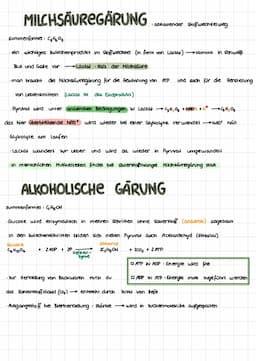 MILCHSÄUREGÄRUNG - abbauender Stoffwechselweg
Summenformel: C₃H₆O₃
- ein wichtiges Zwischenprodukt im Stoffwechsel (in Form von Lactat) → kommt in Schweiß,
Blut und Galle vor → Lactat: Salz der Milchsäure
- man braucht die Milchsäuregärung für die Gewinnung von ATP und auch für die Herstellung
von Lebensmitteln (Lactat ist das Endprodukt)
- Pyruvat wird unter anaeroben Bedingungen zu Lactat → C₃H₄O₃ + NADH + H⁺ → C₃H₆O₃
das hier übertragende NAD⁺ wird wieder bei einer Glykolyse verwendet → lässt
Glykolyse am laufen
- Lactat wandert zur Leber und wird da wieder in Pyruvat umgewandelt
- in menschlichen Muskelzellen findet bei Sauerstoffmangel Milchsäuregärung statt
ALKOHOLISCHE GÄRUNG
Summenformel: C₂H₅OH
- Glucose wird enzymatisch in mehren Schritten ohne Sauerstoff (anaerob) abgebaut
- in den Zwischenschritten bilden sich neben Pyruvat auch Acetaldehyd (Ethanal)
Glucose Ethanol
C₆H₁₂O₆ + 2 ADP + 2P → 2C₂H₅OH + 2CO₂ + 2 ATP
Hefen-
enzyme
ATP zu ADP: Energie wird frei
ADP zu ATP: Energie muss zugeführt werden
- zur Herstellung von Backwaren nutzt du
das Kohlenstoffdioxid (CO₂) → entsteht durch Zutat von Hefe
- Ausgangsstoff bei Bierherstellung: Stärke → wird in Zuckermoleküle aufgespalten